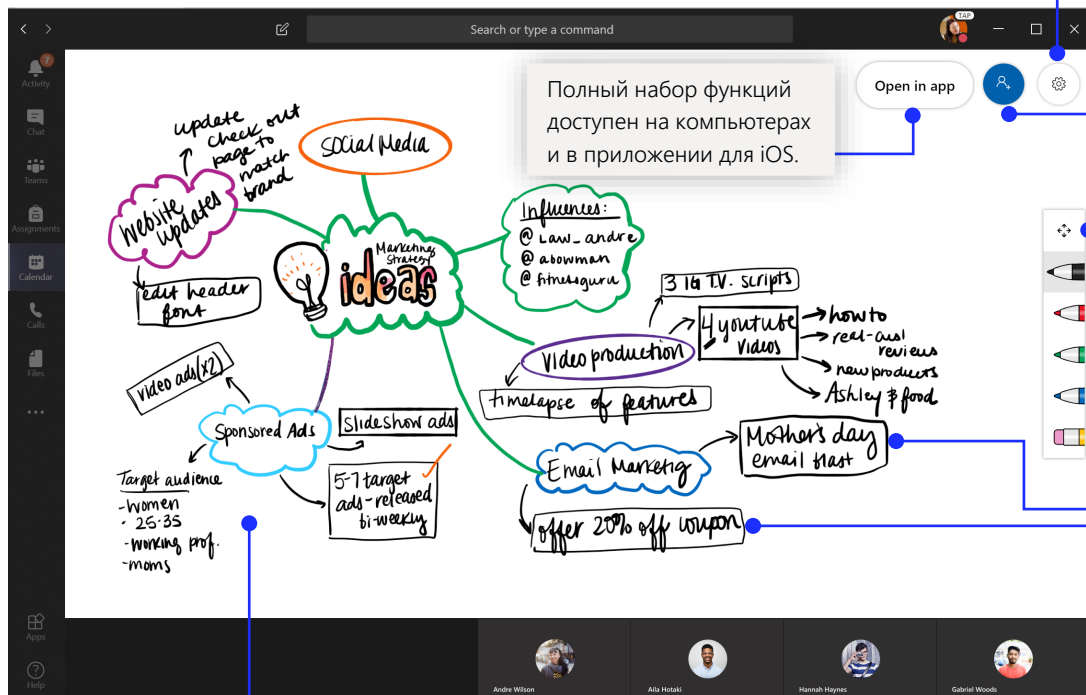 Search or type a command
TAP
7
Activity
Chat
Teams
Assignments
Calendar
Calls
Files
Apps
Help
Полный набор функций
доступен на компьютерах
и в приложении для iOS.
Open in app
update
check out
page to
match
brand
Social Media
Website
updates
edit header
font
Marketing
Strategy
ideas
Influences:
@ Law_andre
@ abowman
@ fitnessguru
3 IG T.V. scripts
4 youtube
videos
how to
real-cust
reviews
new products
Ashley & food
Video production
timelapse of features
video ads (x2)
Sponsored Ads
Slideshow ads
5-7 target
ads - released
bi-weekly
Target audience
- women
- 25-35
- working prof.
- moms
Email Marketig
Mother's day
email blast
offer 20% off coupon
Andre Wilson
Aila Hotaki
Hannah Haynes
Gabriel Woods